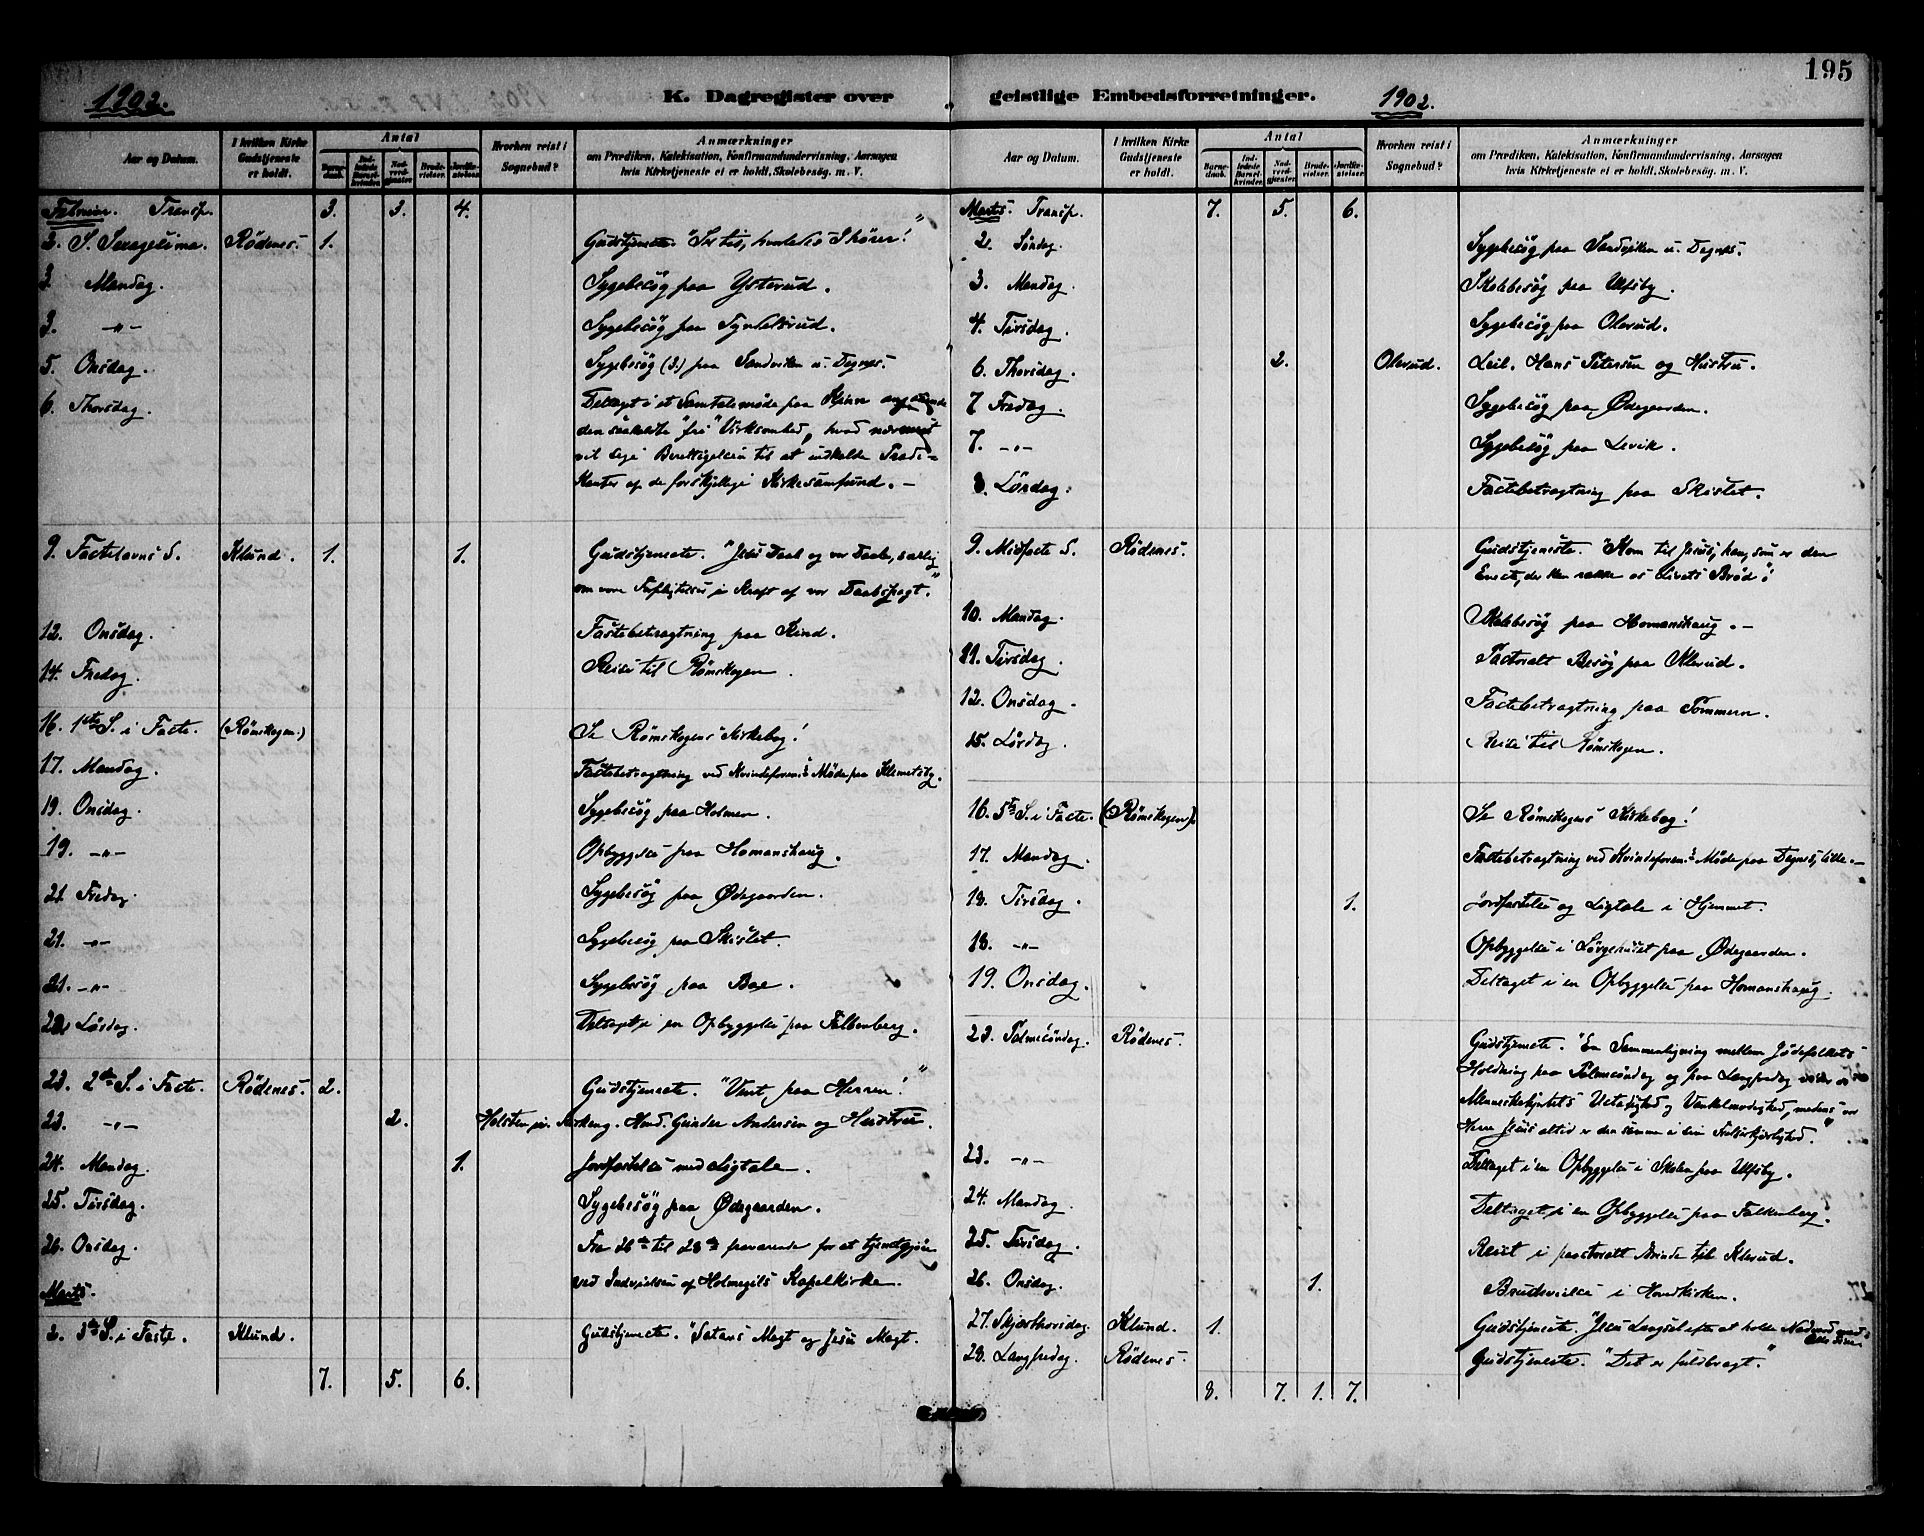 195
1902.
K. Dagregister over
Aar og Datum.
I hvilken Kirke Gudstjeneste er holdt.
Antal
Barnedaab.
Indledede Barselkvinder.
Nadverdgjæster.
Brudevielser.
Jordfæstelser.
Hvorhen reist i Sognebud?
Anmærkninger
om Prædiken, Katekisation, Konfirmandundervisning, Aarsagen
hvis Kirketjeneste ei er holdt, Skolebesøg. m. V.
Februar. Transp. 3. 3. 4.
2. S. Sexagesima. Rödenes. 1. Gudstjeneste. "Se til, hvorledes I hører!"
3. Mandag. Sygebesög paa Ysterud.
3. -"- Sygebesög paa
5. Onsdag. Sygebesög (3.) paa Sandviken u. Degnes.
6. Thorsdag. Deltaget i et Samtalemøde paa angaaende
den saakaldte "fri" Virksomhed, hvad nærmest
vil sige Berettigelsen til at indkalde Prædi-
kanter af de forskjellige Kirkesamfund. -
9. Fastelavns S. Klund. 1. 1. Gudstjeneste. "Jesu Daab og vor Daab, særlig
om vore Forpligtelser i Kraft af vor Daabspagt."
12. Onsdag. Fastebetragtning paa Kind.
14. Fredag. Reise til Römskogen.
16. 1ste S. i Faste. (Römskogen.) Se Römskogens Kirkebog!
17. Mandag. Fastebetragtning ved Kvindeforen.s Møde paa Klemetsby.
19. Onsdag. Sygebesög paa Holmen.
19. -"- Opbyggelse paa Homanshaug.
21. Fredag. Sygebesög paa Ødegaarden.
21. -"- Sygebesög paa Skislet.
21. -"- Sygebesög paa Boe.
22. Lördag. Deltaget i en Opbyggelse paa Falkenberg.
23. 2den S. i Faste. Rödenes. 2. Gudstjeneste. "Vent paa Herren!"
23. -"- 2. Holsten Kirkeng. Hmd. Gunder Andersen og Hustru.
24. Mandag. 1. Jordfæstelse med Ligtale.
25. Tirsdag. Sygebesög paa Ødegaarden.
26. Onsdag. Fra 26de til 28de fraværende for at tjenstgjøre
ved Indvielsen af Holmegils Kapelkirke.
Marts.
2. 3die S. i Faste. Klund. Gudstjeneste. "Satans Magt og Jesu Magt.
7. 5. 6.
geistlige Embedsforretninger.
1902.
Aar og Datum.
I hvilken Kirke Gudstjeneste er holdt.
Antal
Barnedaab.
Indledede Barselkvinder.
Nadverdgjæster.
Brudevielser.
Jordfæstelser.
Hvorhen reist i Sognebud?
Anmærkninger
om Prædiken, Katekisation, Konfirmandundervisning, Aarsagen
hvis Kirketjeneste ei er holdt, Skolebesøg. m. V.
Marts. Transp. 7. 5. 6.
2. Söndag. Sygebesög paa Sandviken u. Degnes.
3. Mandag. Skolebesög paa Ulfsby.
4. Tirsdag. Sygebesög paa Olerud.
6. Thorsdag. 2. Olerud. Leil. Hans Petersen og Hustru.
7 Fredag. Sygebesög paa Ødegaarden.
7. -"- Sygebesög paa Levik.
8. Lördag. Fastebetragtning paa Skislet.
9. Midfaste S. Rödenes. Gudstjeneste. "Kom til Jesus, han, som er den
Eneste, der kan række os Livets Bröd"!
10. Mandag. Skolebesög paa Homanshaug. -
11. Tirsdag. Pastoralt Besög paa Klerud.
12. Onsdag. Fastebetragtning paa Tommern.
15. Lördag. Reise til Römskogen.
16. 5te S. i Faste. (Römskogen). Se Römskogens Kirkebog!
17. Mandag. Fastebetragtning ved Kvindeforen.s Møde paa Degnes, lille. -
18. Tirsdag. 1. Jordfæstelse og Ligtale i Hjemmet.
18. -"- Opbyggelse i Sörgehuset paa Ødegaarden.
19. Onsdag. Deltaget i en Opbyggelse paa Homanshaug.
23. Palmesöndag. Rödenes. Gudstjeneste. "En Sammenligning mellem Jödefolkets
Holdning paa Palmesöndag og paa Langfredag viser os
Menneskehjertets Ustadighed og Vankelmodighed, medens vor
Herre Jesus altid er den samme i sin Frelserkjærlighed."
23. -"- Deltaget i en Opbyggelse i Skolen paa Ulfsby.
24. Mandag. Deltaget i en Opbyggelse paa Falkenberg.
25. Tirsdag. Reist i pastoralt Ærinde til Klerud.
26. Onsdag. 1. Brudevielse i Hovedkirken.
27. Skjærthorsdag. Klund. 1. Gudstjeneste. "Jesu Længsel efter at holde Nadverd med
sine
28. Langfredag. Rödenes. Gudstjeneste. "Det er fuldbragt."
8. 7. 1. 7.